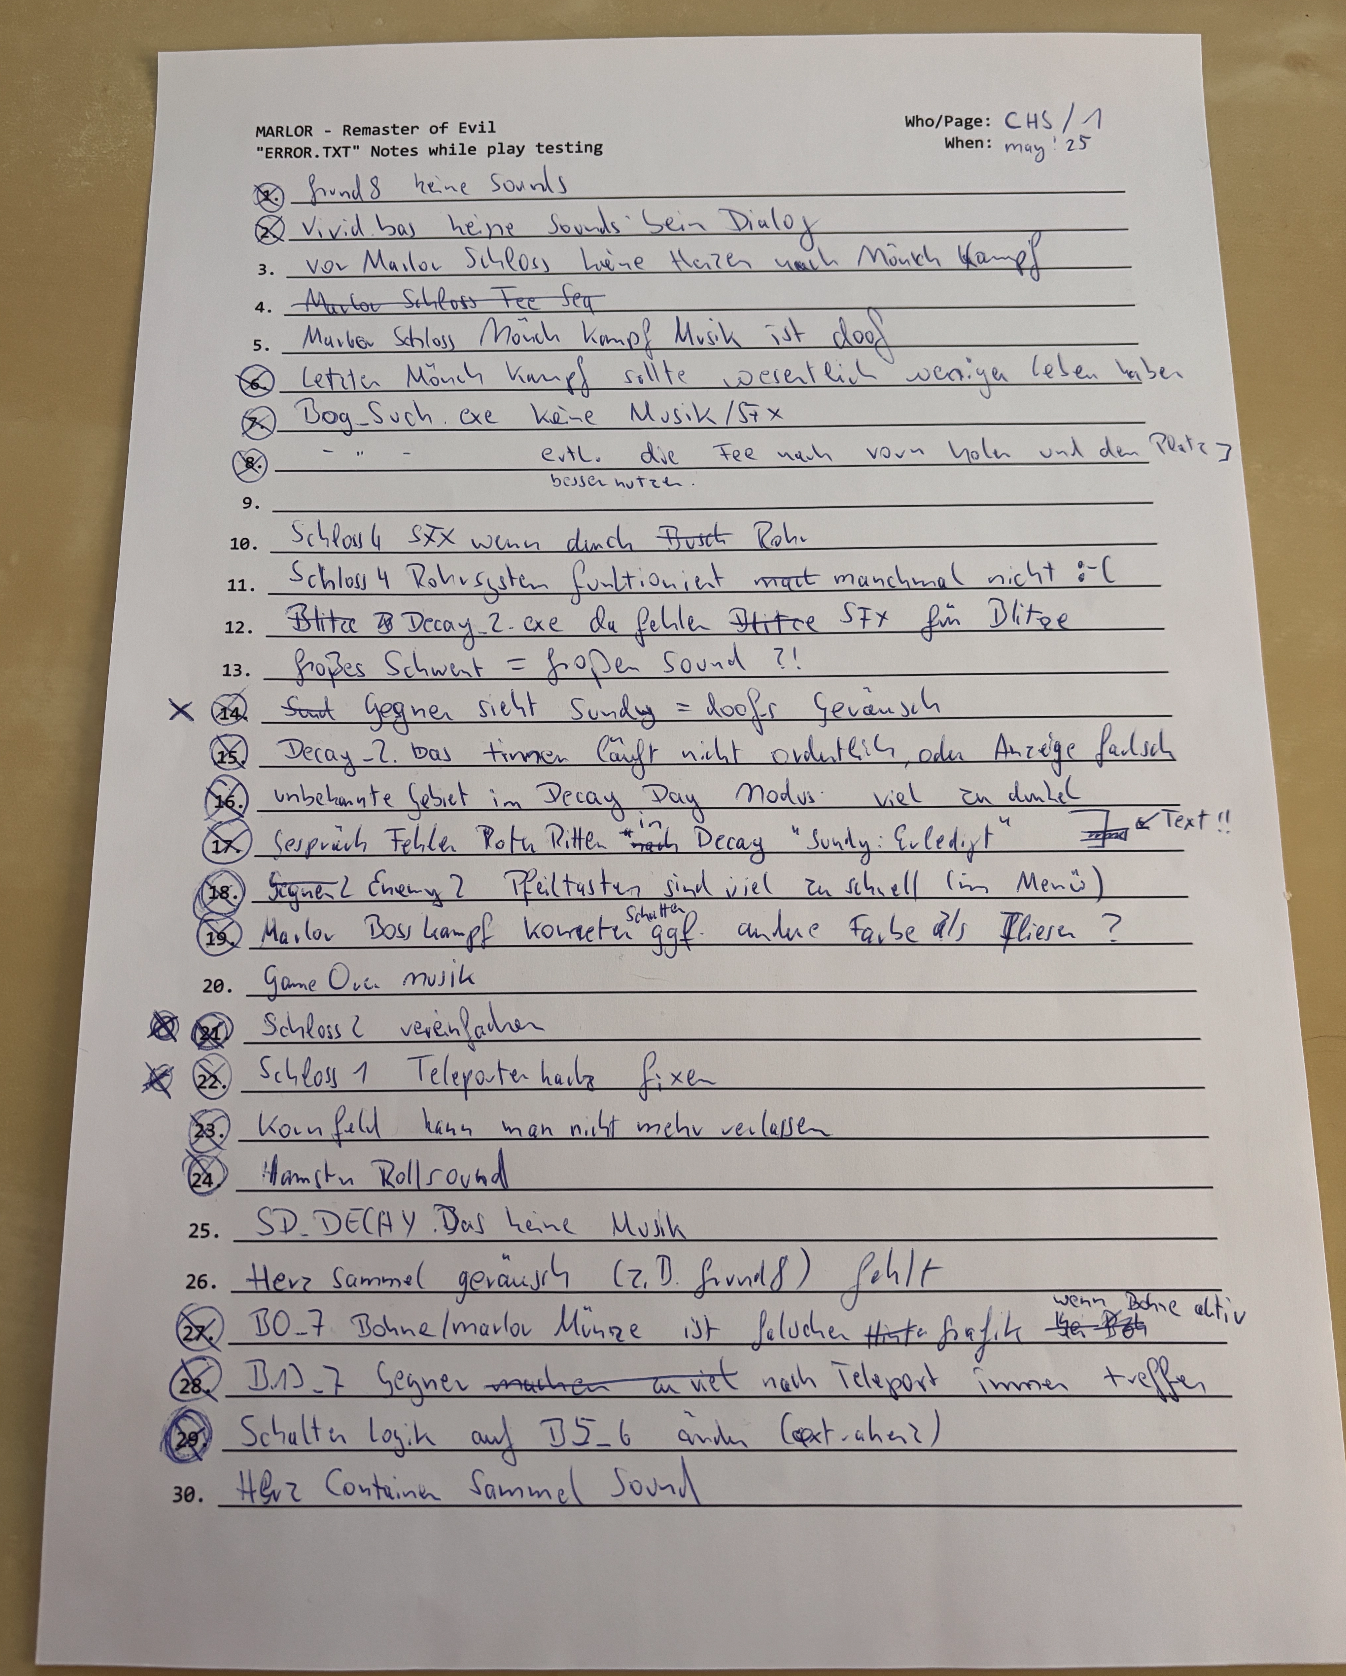 MARLOR - Remaster of Evil
"ERROR.TXT" Notes while play testing
Who/Page: CHS / 1
When: may '25
1. grund8 keine Sounds
2. Vivid.bas keine Sounds bein Dialog
3. vor Marlor Schloss keine Herzen nach Mönch Kampf
4. Marlor Schloss Fee Seq
5. Marlor Schloss Mönch Kampf Musik ist doof
6. Letzter Mönch Kampf sollte wesentlich weniger Leben haben
7. Bog_Such.exe keine Musik/SFX
8. - " - evtl. die Fee nach vorn holen und den Platz
besser nutzen.
9.
10. Schloss4 SFX wenn durch Busch Rohr
11. Schloss4 Rohrsystem funktioniert manchmal nicht :-(
12. Blitze Decay_2.exe da fehlen Blitze SFX für Blitze
13. großes Schwert = großer Sound ?!
14. Gegner sieht Sundy = doofs Geräusch
15. Decay_2.bas timer läuft nicht ordentlich, oder Anzeige falsch
16. unbekannte Gebiet im Decay Day Modus viel zu dunkel
17. Gespräch Fehler Roter Ritter in nach Decay "Sundy: Erledigt" ↙ Text !!
18. Gegner2 Enemy2 Pfeiltasten sind viel zu schnell (im Menü)
19. Marlor Bosskampf Kometen Schatten ggf. andere Farbe als Fliesen ?
20. Game Over musik
21. Schloss2 vereinfachen
22. Schloss 1 Teleporter hack fixen
23. Kornfeld kann man nicht mehr verlassen
24. Hamster Rollsound
25. SD_DECAY.Bas keine Musik
26. Herz Sammel geräusch (z.B. grund8) fehlt
27. BO_7 Bohne/marlor Münze ist falscher Grafik wenn Bohne aktiv
28. Gegner machen zu viel nach Teleport immer treffer
29. Schalter Logik auf B5_6 ändern
30. Herz Container Sammel Sound